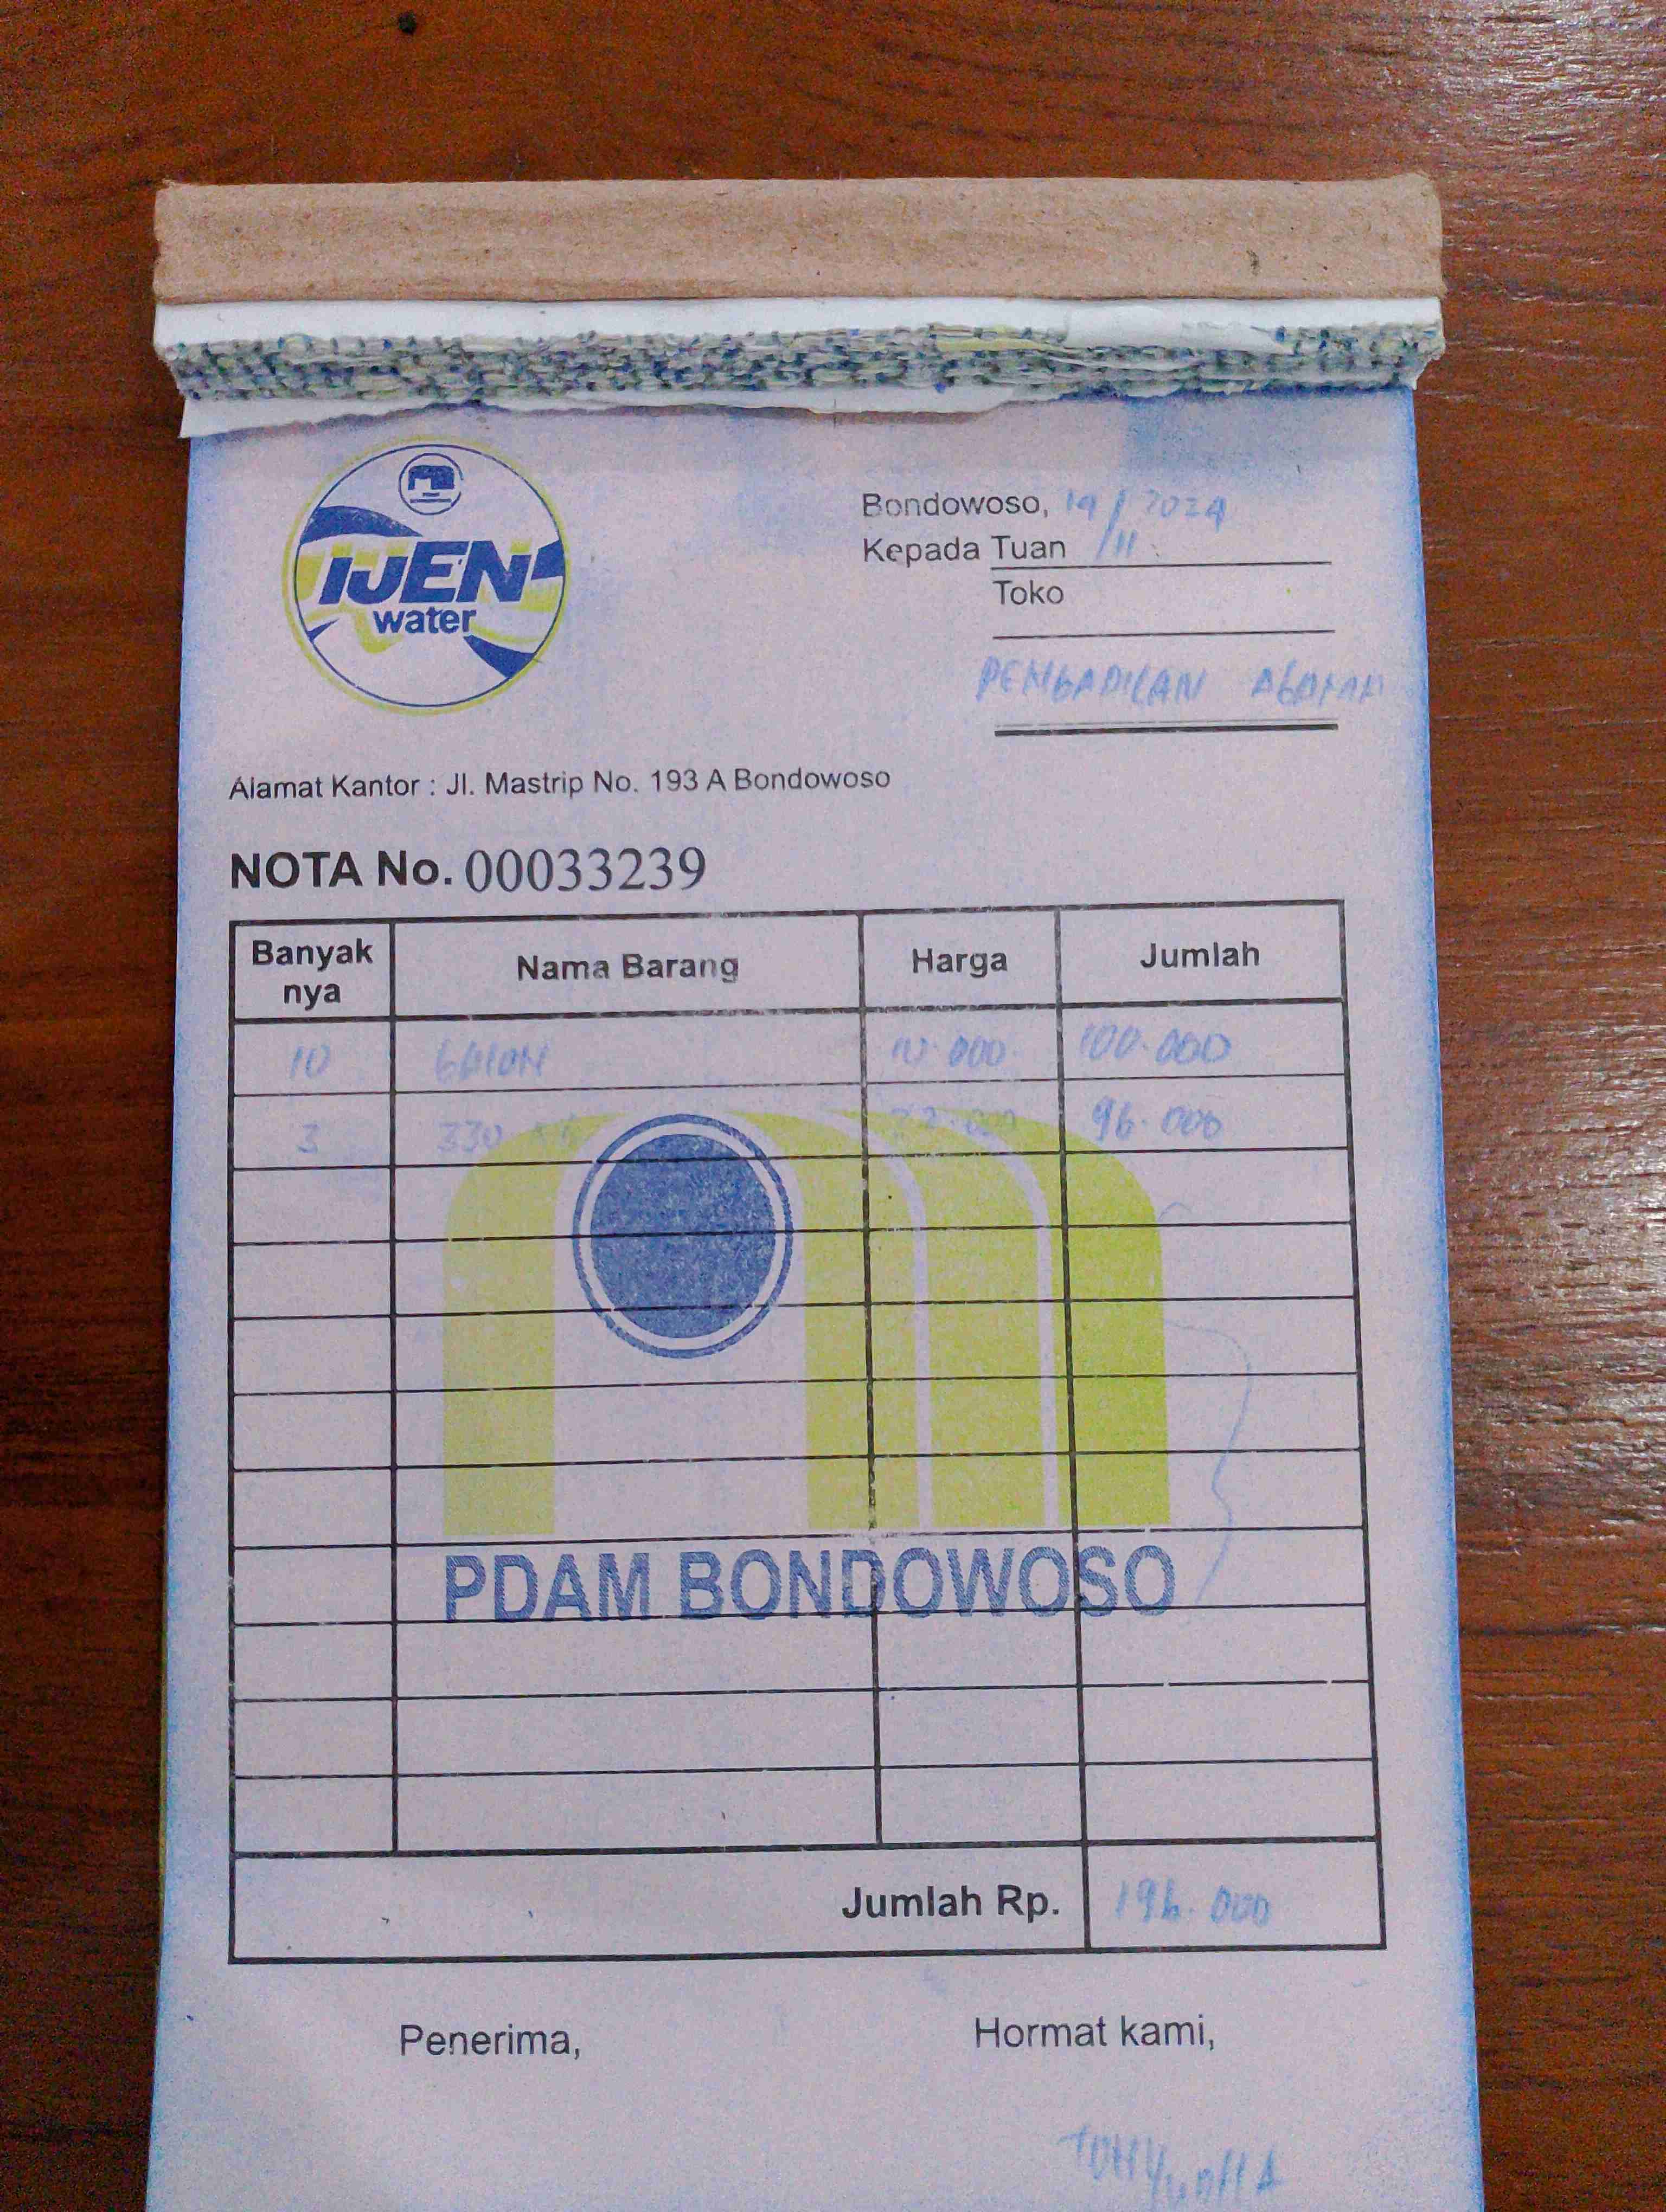 IJEN
water
Bondowoso, 19/11 2024
Kepada Tuan
Toko
PENGADILAN AGAMA
Alamat Kantor : Jl. Mastrip No. 193 A Bondowoso
NOTA No. 00033239
Banyak nya Nama Barang Harga Jumlah
10 GALON 10.000 100.000
3 330 32.000 96.000
PDAM BONDOWOSO
Jumlah Rp. 196.000
Penerima, Hormat kami,